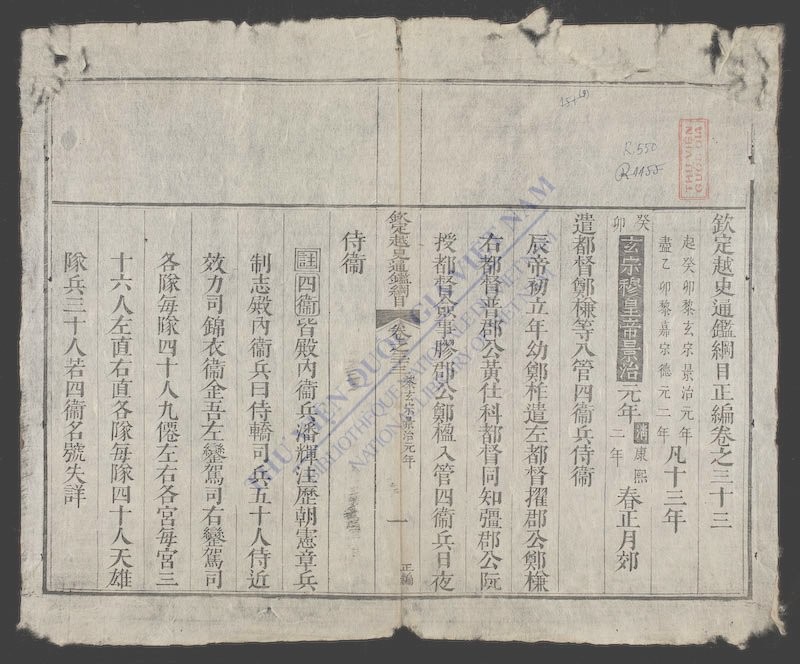 欽定越史通鑑綱目正編卷之三十三
起癸卯黎玄宗景治元年
盡乙卯黎嘉宗德元二年
凡十三年
癸卯
玄宗穆皇帝景治元年
清康熙二年
春正月郊
遣都督鄭㯲等入管四衞兵侍衞
辰帝初立年幼鄭柞遣左都督擢郡公鄭㯲
右都督晋郡公黃仕科都督同知彊郡公阮
授都督僉事膠郡公鄭楹入管四衞兵日夜
欽定越史通鑑綱目
卷之三十三
黎玄宗景治元年
一
正編
侍衞
註四衞皆殿內衞兵潘輝注歷朝憲章兵
制志殿內衞兵曰侍轎司兵五十人侍近
效力司錦衣衞金吾左鑾駕司右鑾駕司
各隊每隊四十人九僊左右各宮每宮三
十六人左直右直各隊每隊四十人天雄
隊兵三十人若四衞名號失詳
R.550
R.1155
THƯ VIỆN
QUỐC GIA
THƯ VIỆN QUỐC GIA VIỆT NAM
BIBLIOTHEQUE NATIONALE DU VIETNAM
NATIONAL LIBRARY OF VIETNAM